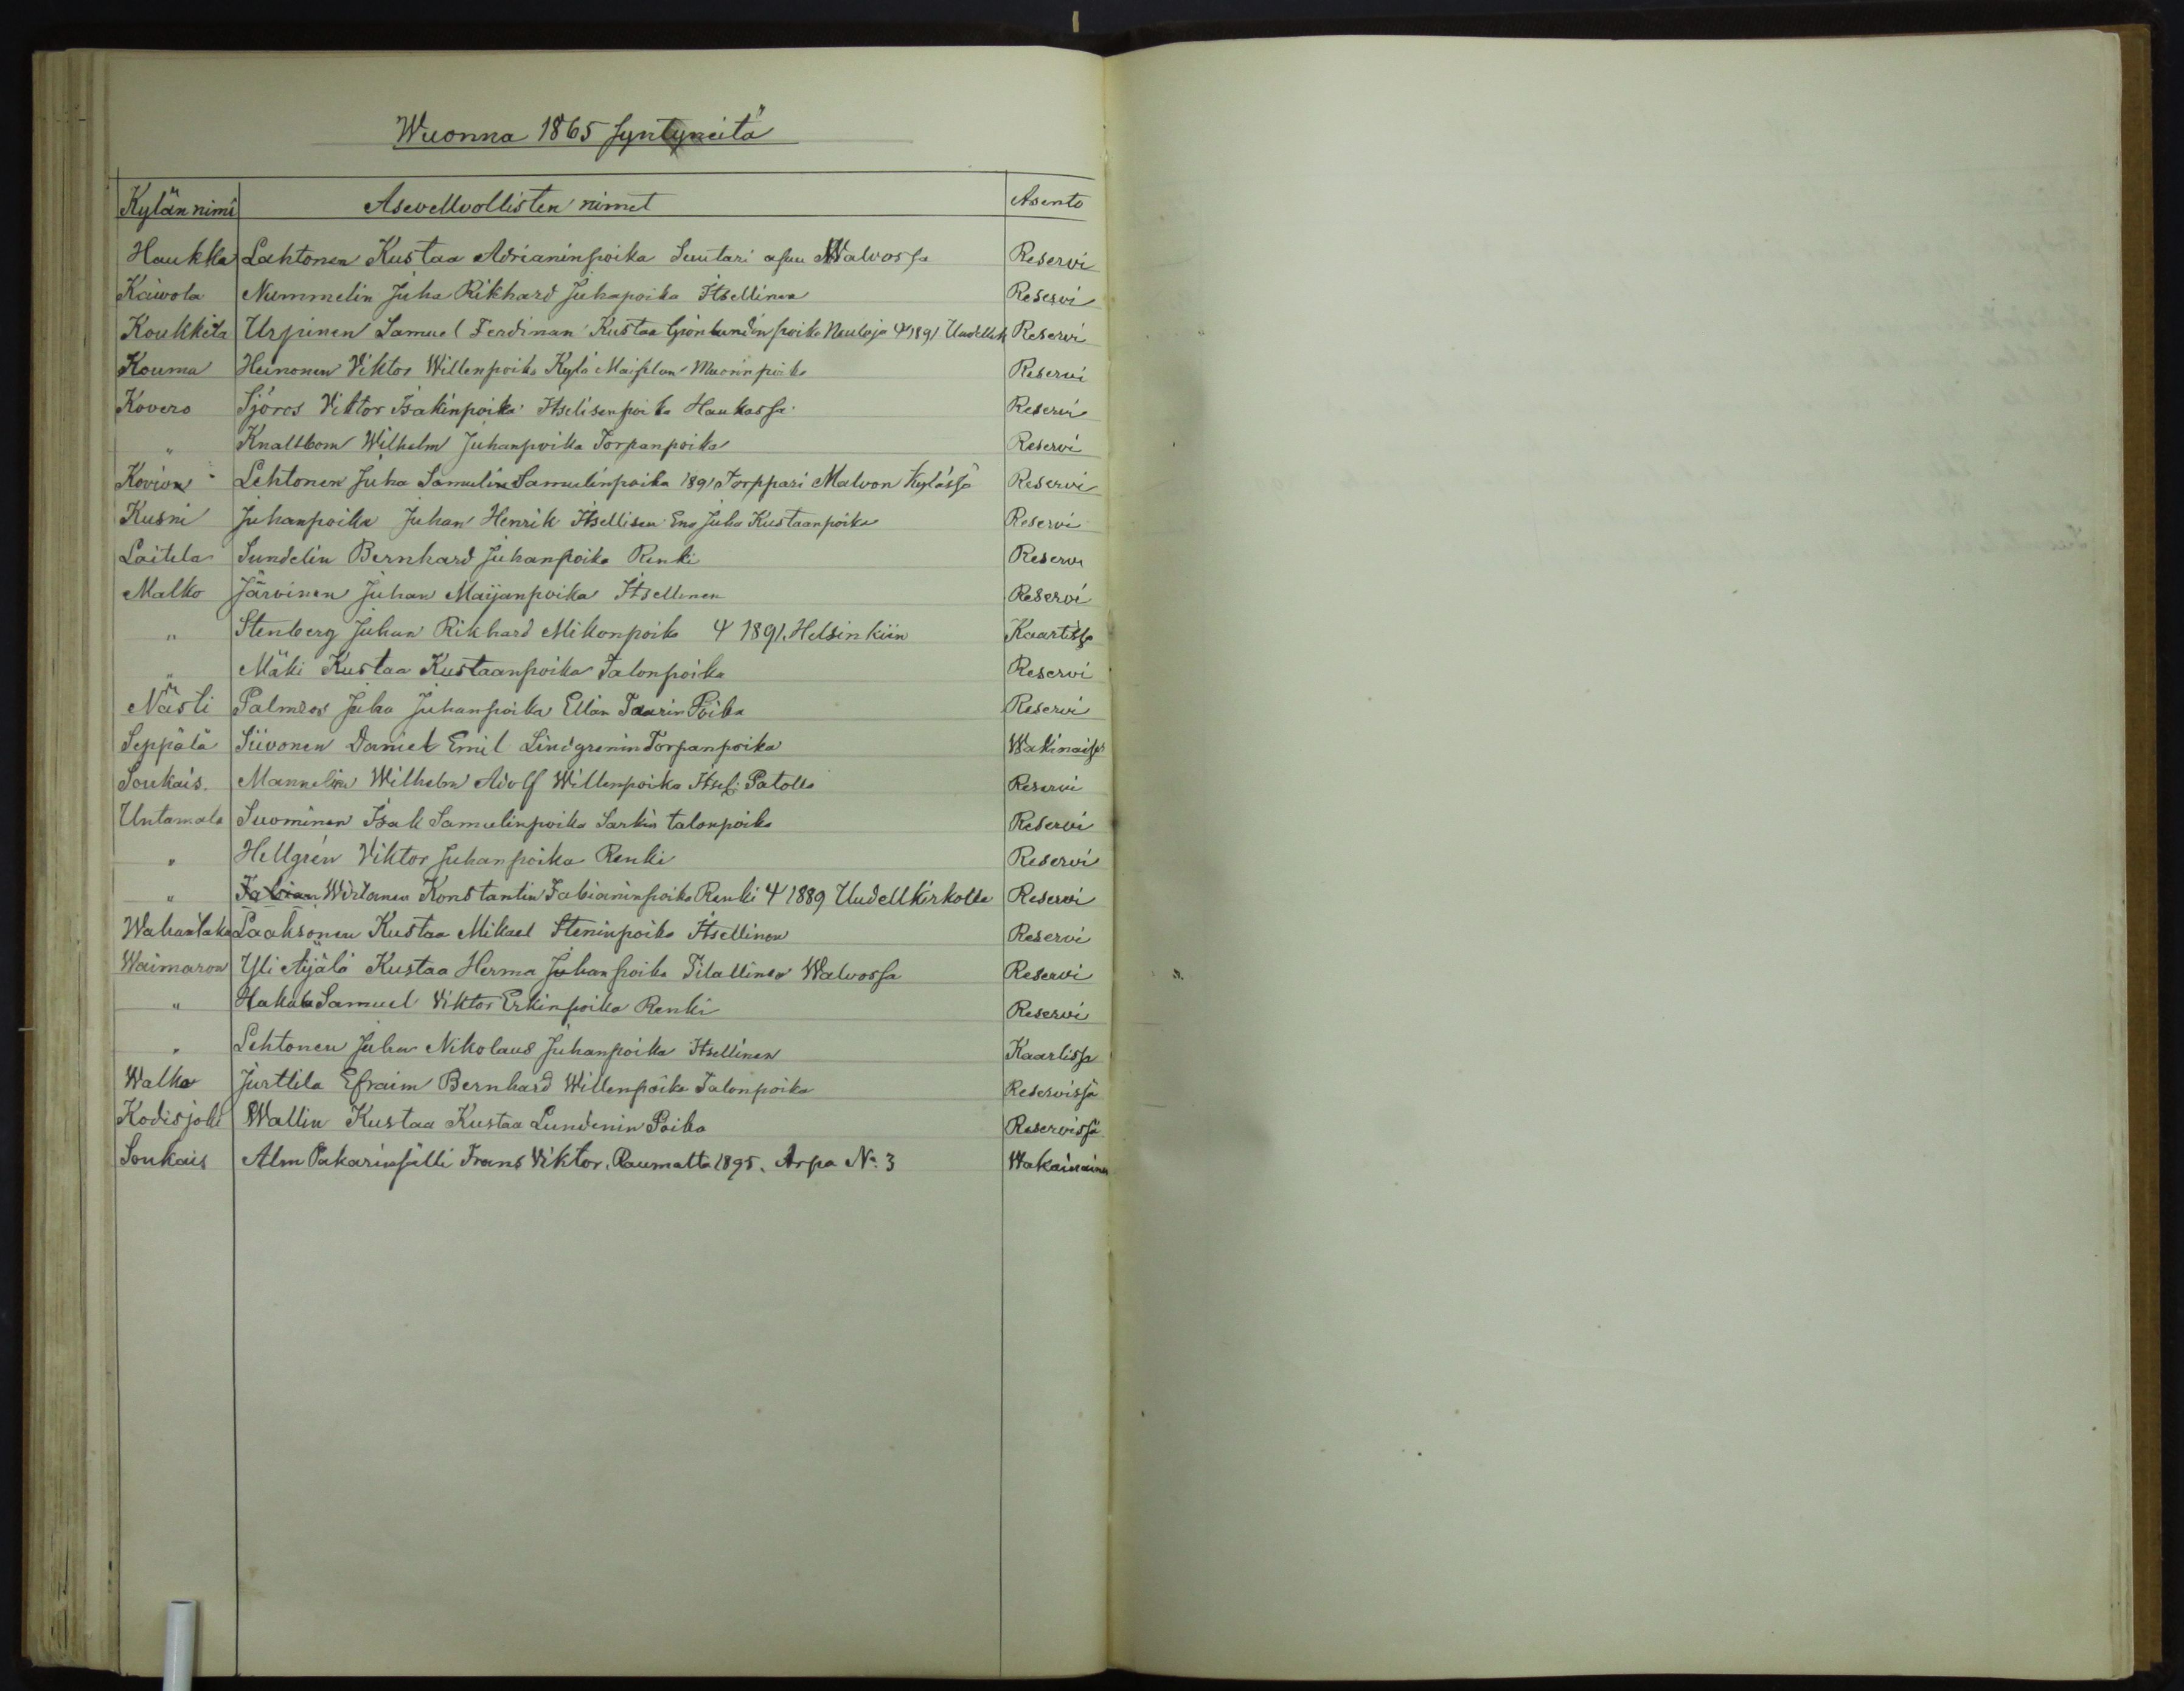 Wuonna 1865 syntyneitä
Kylän nimi Asevellvollisten nimet Asento
Haukka Lahtonen Kustaa Adrianinpoika Suutari asuu Walvossa Reservi
Kaivola Nummelin Juha Rikhard Juhapoika Itsellinen Reservi
Koukkela Urpinen Samuel Ferdinan Kustaa Grönlundinpoika Neuloja Ψ 1891 Uudellek Reservi
Kouma Heinonen Viktor Willenpoika Kylä Muorinpoika Reservi
Kovero Sjöros Viktor Isakinpoika Itselisenpoika Haukassa Reservi
" Knaltbom Wilhelm Juhanpoika Torpanpoika Reservi
Kovion Lehtonen Juha Samulin Samulinpoika 1891 Torppari Malvon Kylässä Reservi
Kusni Juhanpoika Juhan Henrik Itsellisen Eno Juha Kustaanpoika Reservi
Laitila Sundelin Bernhard Juhanpoika Renki Reservi
Malko Järvinen Juhan Maijanpoika Itsellinen Reservi
" Stenberg Juhan Rikhard Mikonpoika Ψ 1891. Helsinkiin Kaartissa
" Mäki Kustaa Kustaanpoika Talonpoika Reservi
Nästi Palmros Juha Juhanpoika Ellän Taarin Poika Reservi
Seppälä Siivonen Daniel Emil Lindgrenin Torpanpoika Wakinaises
Soukais. Mannelin Wilhelm Adolf Willenpoika Itsel: Patolla Reservi
Untamala Suominen Isak Samulinpoika Sarkin talonpoika Reservi
" Hellgrén Viktor Juhanpoika Renki Reservi
" Fabian Wirtanen Konstantin Fabianinpoika Renki Ψ 1889 Uudellkirkolle Reservi
Wahantaka Laaksonen Kustaa Mikael Steninpoika Itsellinen Reservi
Waimaron Yli Äijälä Kustaa Herma Juhanpoika Tilallinen Walvossa Reservi
" Hakala Samuel Viktor Erkinpoika Renki Reservi
" Lehtonen Juha Nikolaus Juhanpoika Itsellinen Kaartissa
Walko Jurttila Efraim Bernhard Willenpoika Talonpoika Reservissä
Kodisjoki Wallin Kustaa Kustaa Lundenin Poika Reservissä
Soukais Alm Pakarinsälli Frans Viktor. Raumalta 1895. Arpa No. 3 Wakainainen